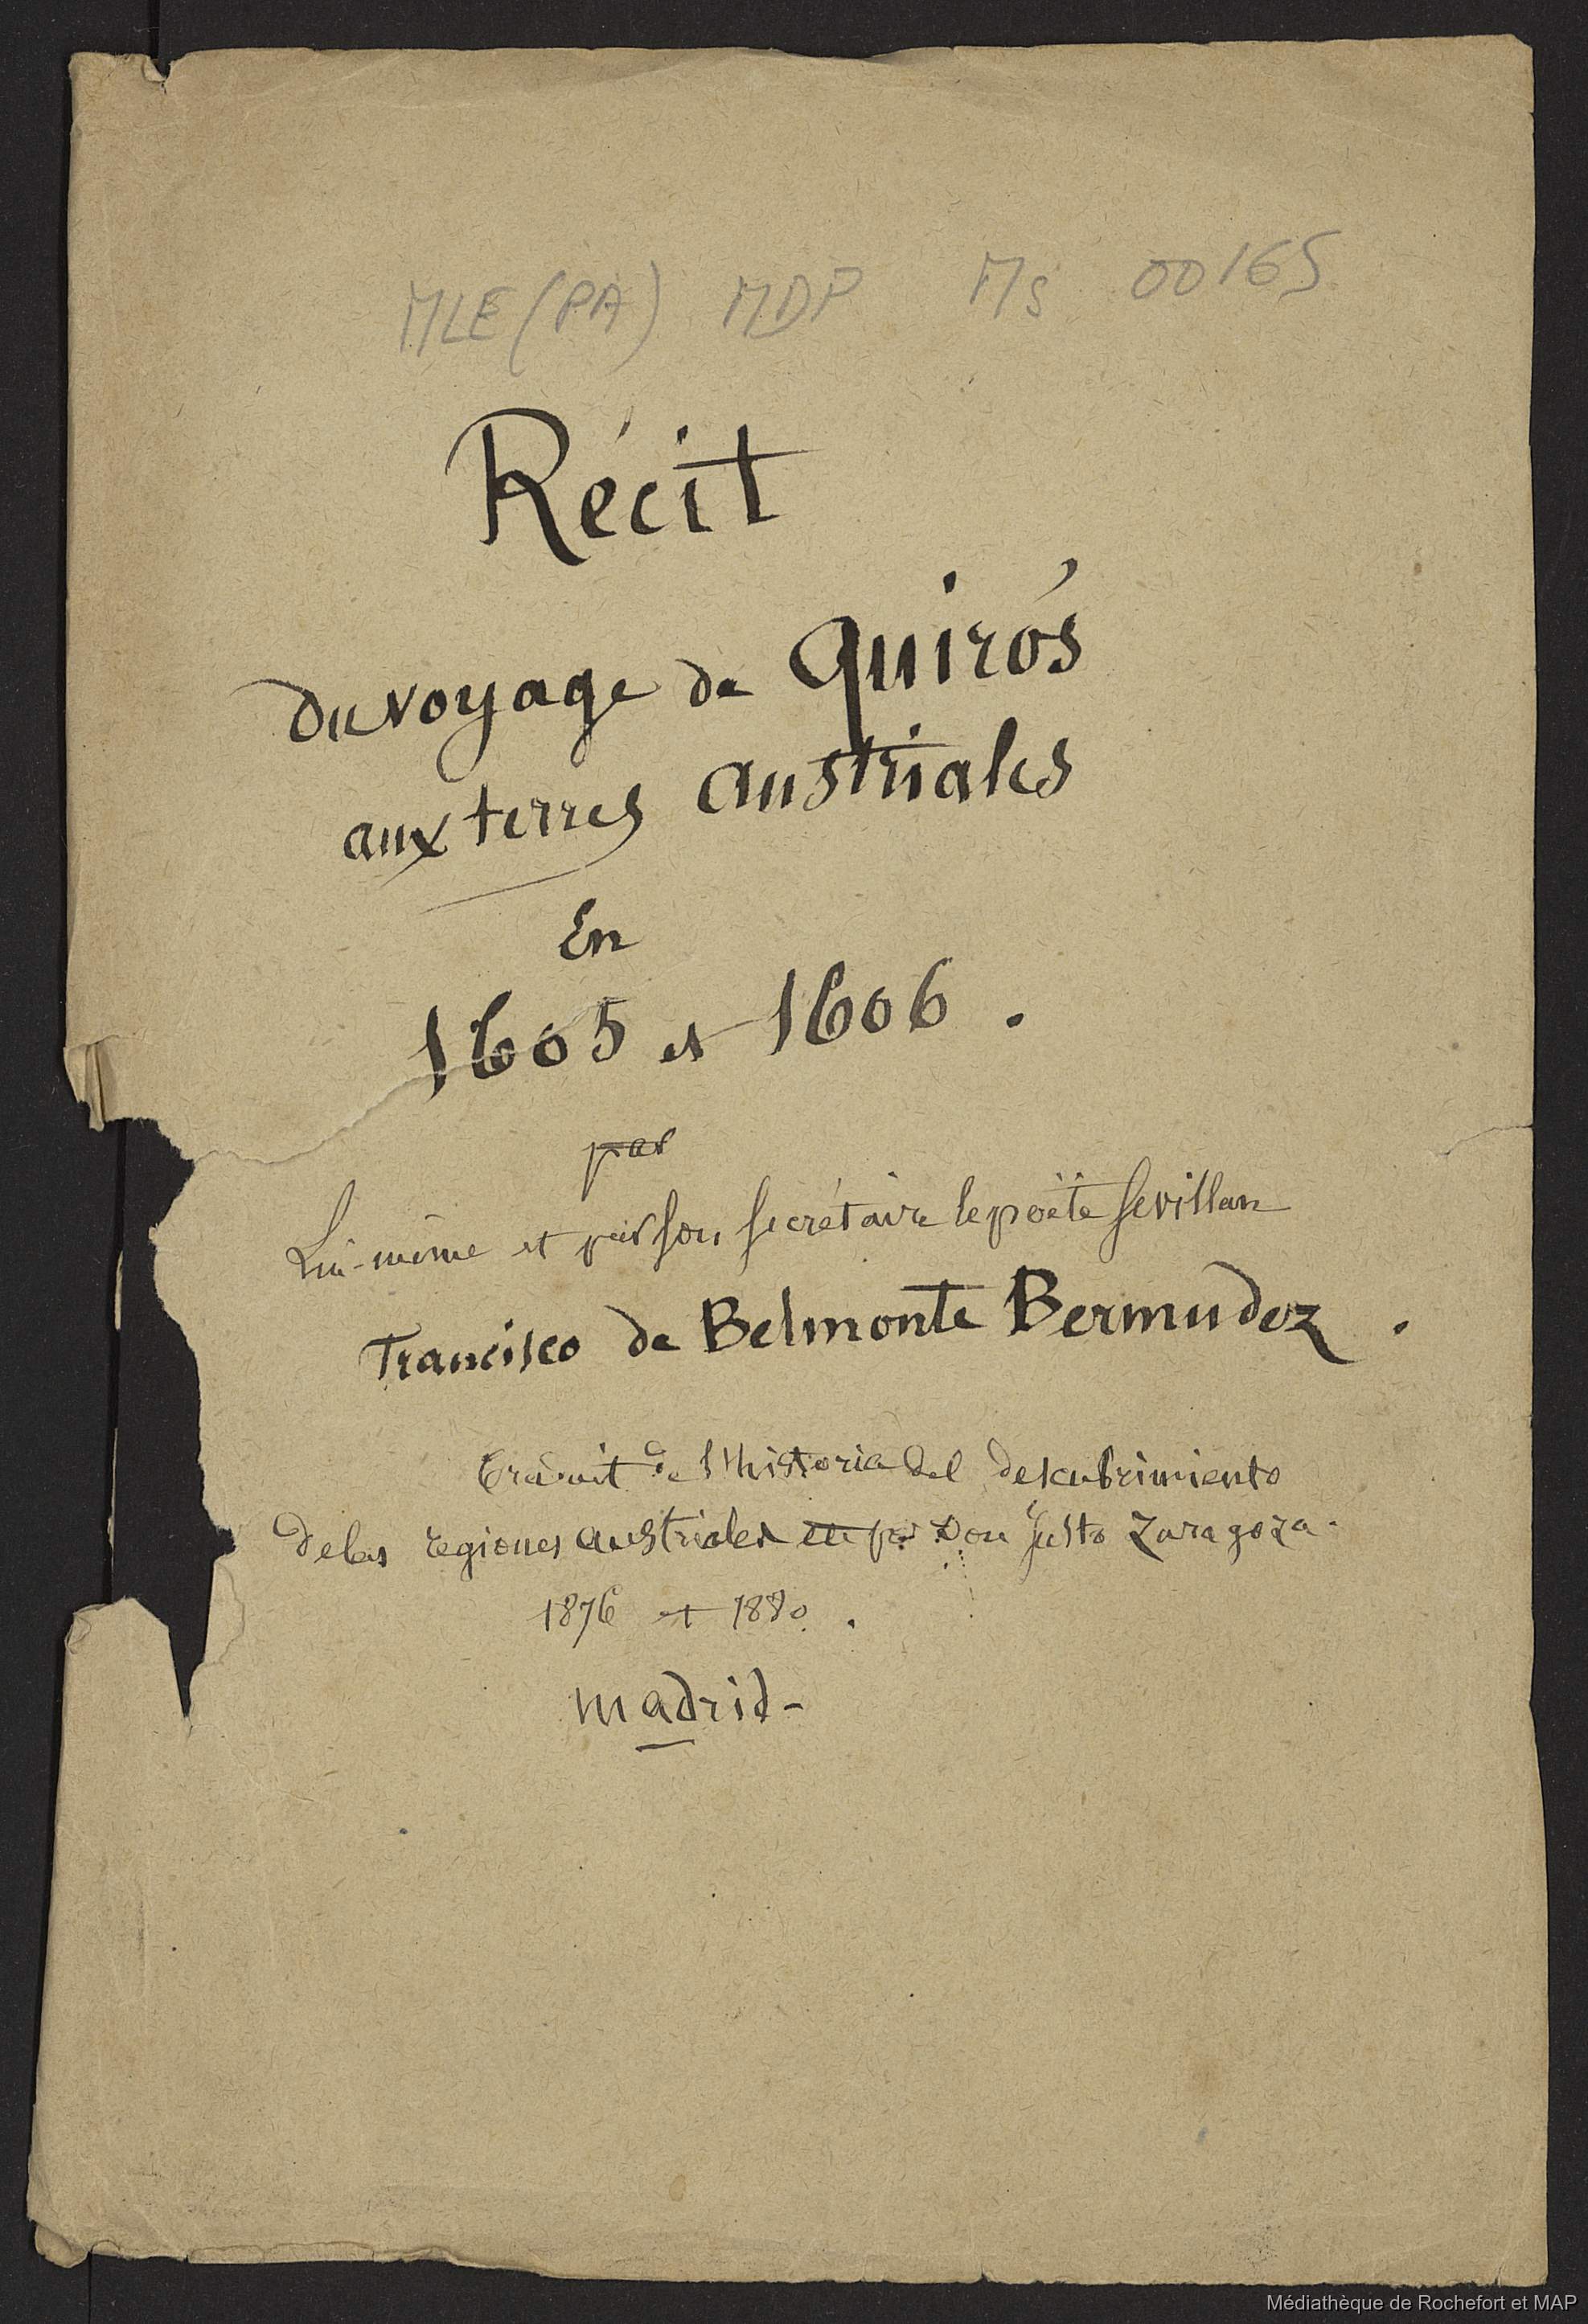 MLE (PA) MDP Ms 00165
Récit
du voyage de Quirós
aux terres austriales
En
1605 et 1606.
par
Lui-même et par son secrétaire le poëte sevillan
Francisco de Belmonte Bermudez.
traduit de l'historia del descubrimiento
de las regiones austriales par Don Justo Zaragoza.
1876 et 1880.
Madrid-
Médiathèque de Rochefort et MAP